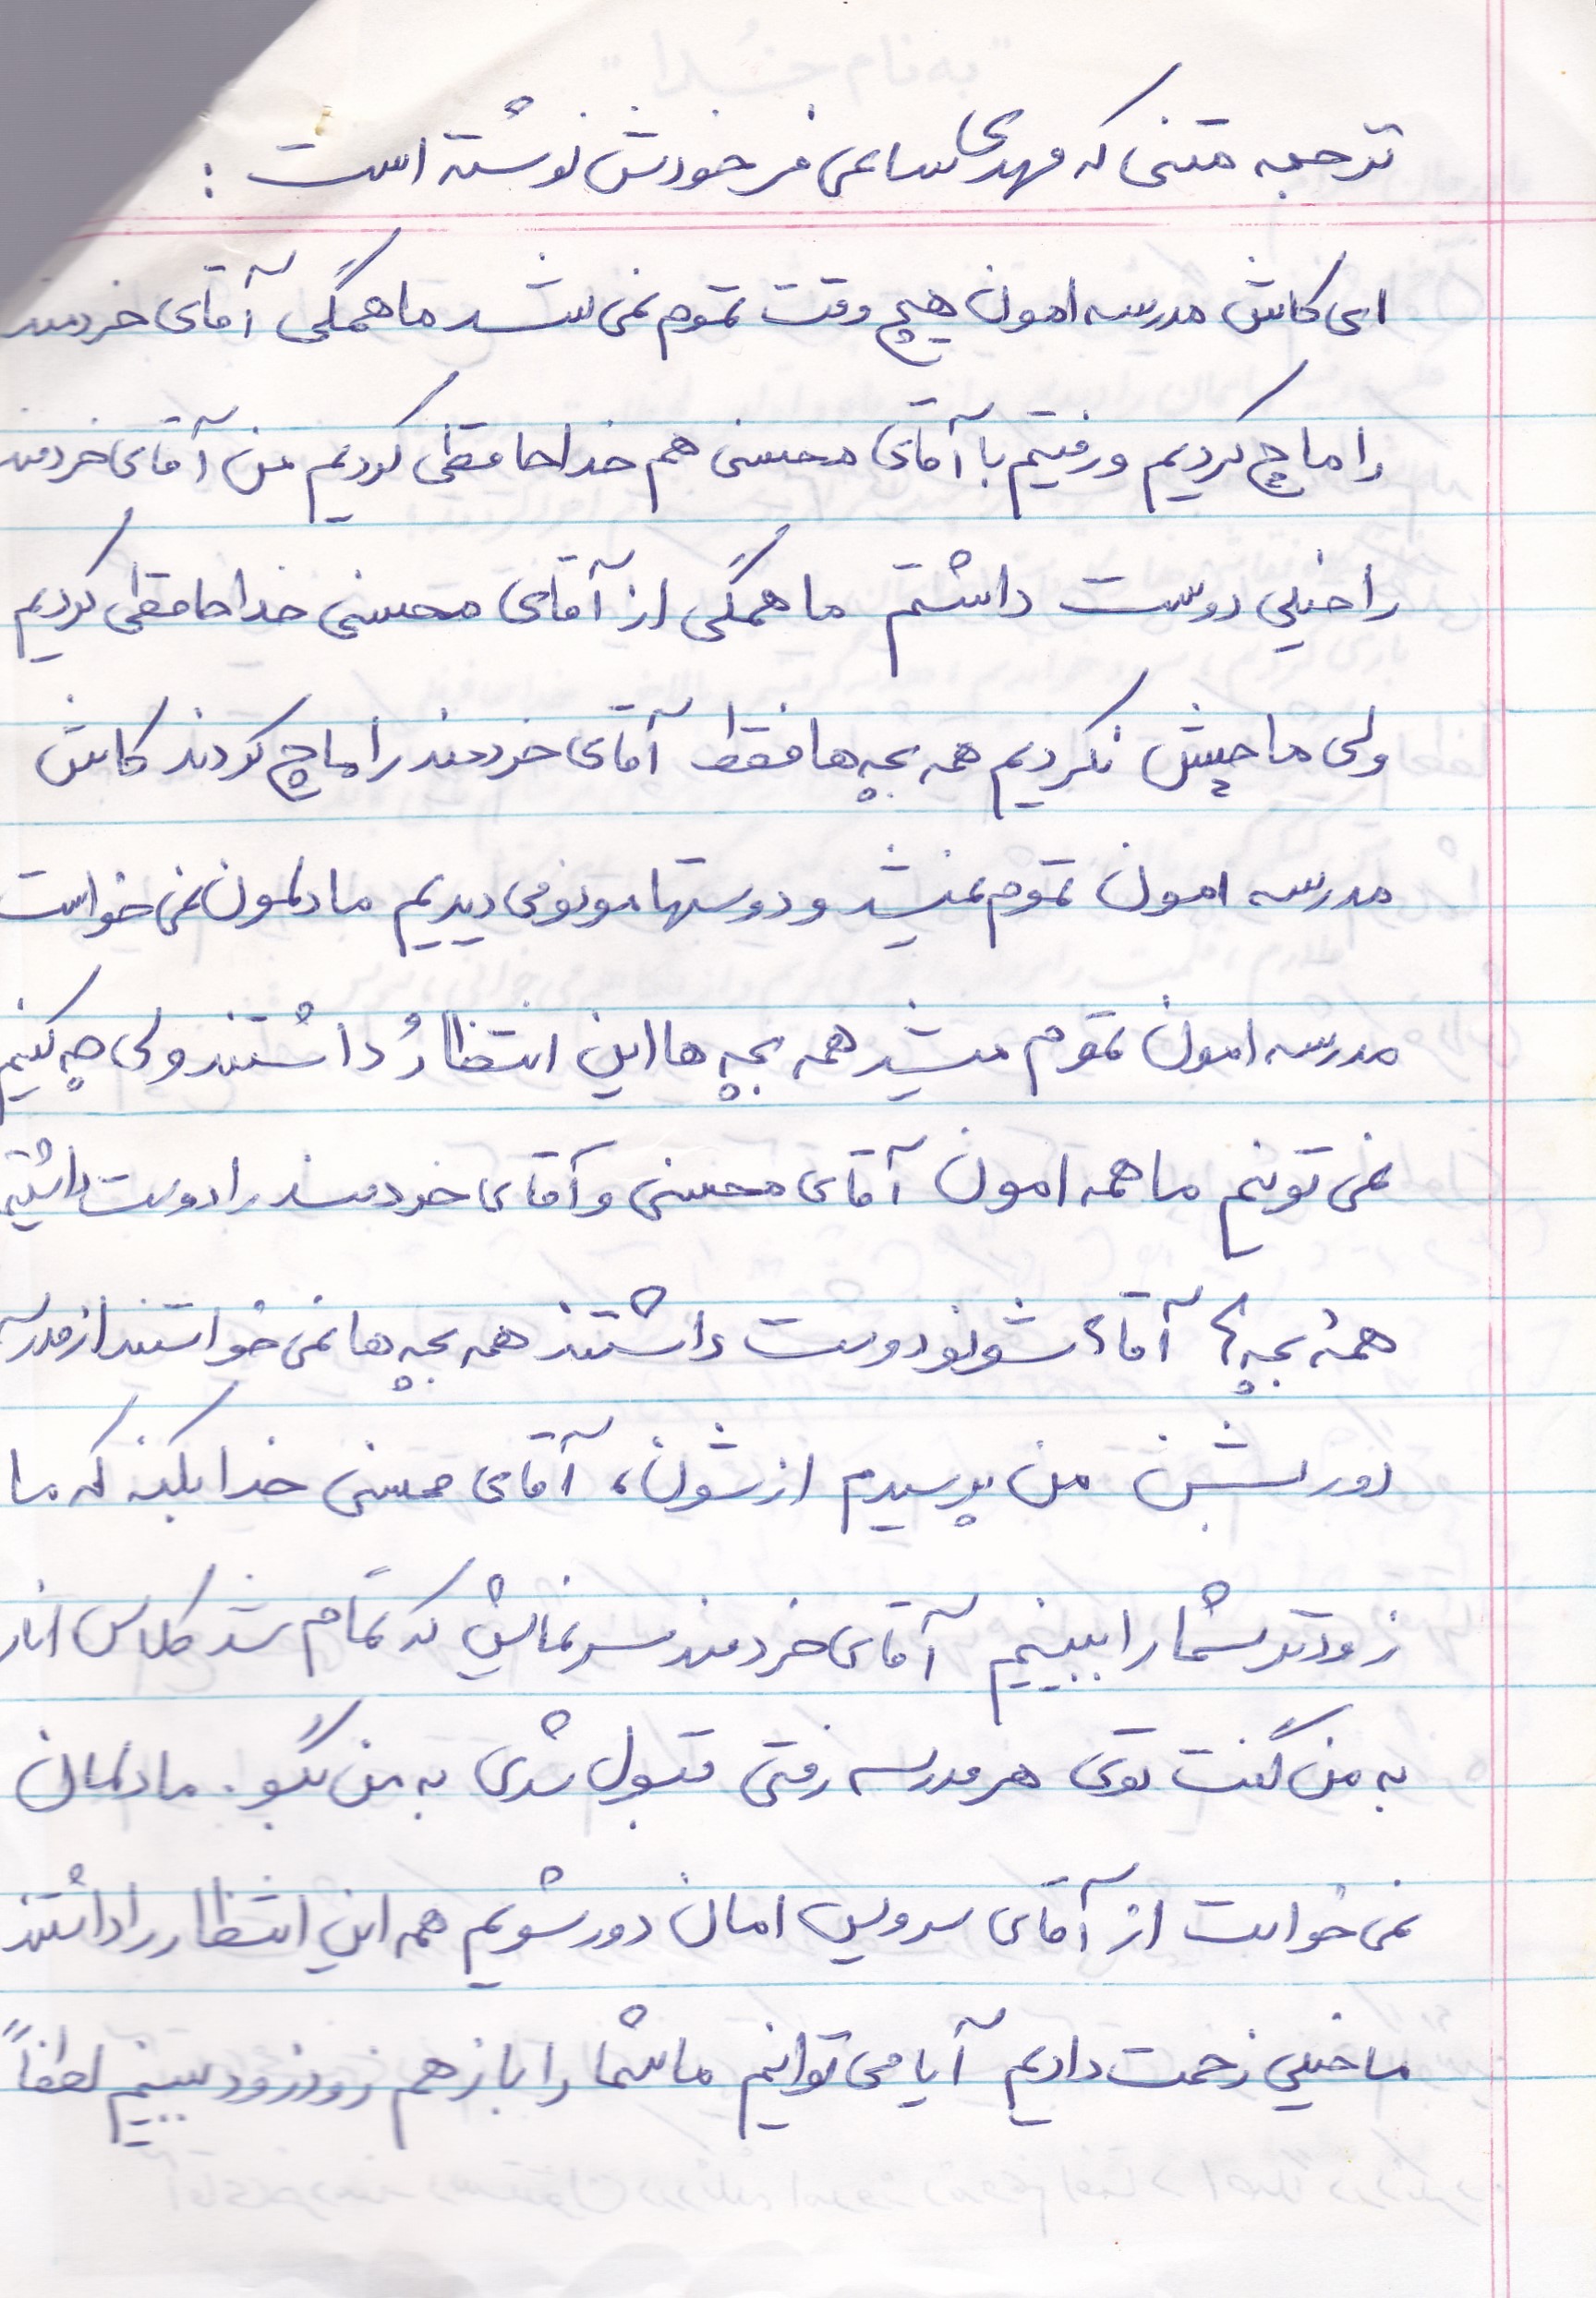 ترجمه متنی که مهدی ساعی فر خودش نوشته است :
ای کاش مدرسه امون هیچ وقت تموم نمی شد ما همگی آقای خردمند
را ماچ کردیم و رفتیم با آقای محسنی هم خداحافظی کردیم من آقای خردمند
را خیلی دوست داشتم ما همگی از آقای محسنی خداحافظی کردیم
ولی ماچش نکردیم همه بچه ها فقط آقای خردمند را ماچ کردند کاش
مدرسه امون تموم نمیشد و دوستهامونو می دیدیم ما دلمون نمی خواست
مدرسه امون تموم میشد همه بچه ها این انتظارُ داشتند ولی چه کنیم
نمی تونیم ما همه امون آقای محسنی و آقای خردمند را دوست داشتیم
همهٔ بچه ها آقاشونو دوست داشتند همه بچه ها نمی خواستند از مدرسه
دور بشن من پرسیدم ازشون، آقای محسنی خدا بکنه که ما
زودتر شما را ببینیم آقای خردمند سر نمایش که تمام شد کلاس انار
به من گفت توی هر مدرسه رفتی قبول شدی به من بگو. ما دلمان
نمی خواست از آقای سرویس امان دور شویم همه این انتظار را داشتند
ما خیلی زحمت دادیم آیا می توانیم ما شما را باز هم زود زود ببینیم لطفاً